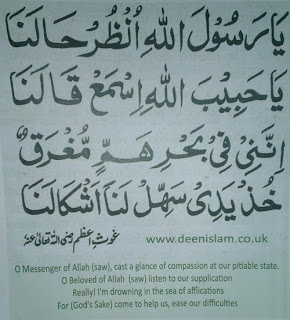 يَا رَسُوْلَ اللهِ اُنْظُرْ حَالَنَا
يَا حَبِيْبَ اللهِ اِسْمَعْ قَالَنَا
اِنَّنِىْ فِىْ بَحْرِ هَمٍّ مُّغْرَقٌ
خُذْ يَدِىْ سَهِّلْ لَنَا اَشْكَالَنَا
غوثِ اعظم رضی اللہ تعالیٰ عنہ
www.deenislam.co.uk
O Messenger of Allah (saw), cast a glance of compassion at our pitiable state.
O Beloved of Allah (saw) listen to our supplication
Really! I'm drowning in the sea of afflications
For (God's Sake) come to help us, ease our difficulties